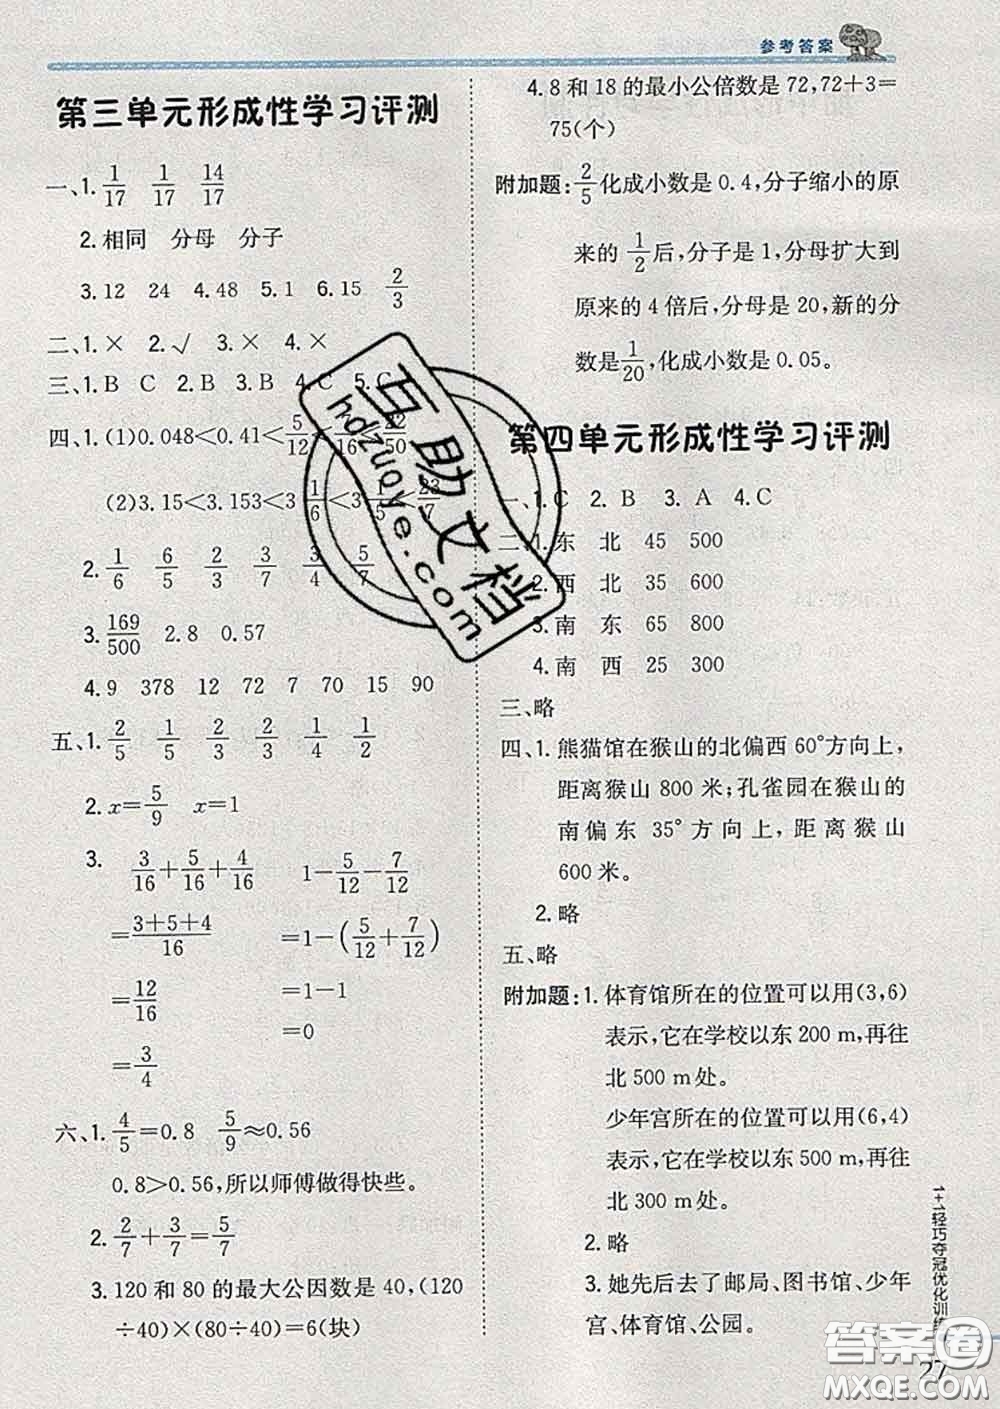 参考答案
第三单元形成性学习评测
一、1. 1/17 1/17 14/17
2.相同 分母 分子
3.12 24 4.48 5.1 6.15 2/3
二、1.× 2.√ 3.× 4.×
三、1.B C 2.B 3.B 4.C 5.C
四、1.(1)0.048<0.41<5/12< /16<22/50
(2)3.15<3.153<3 1/6<3 1/5<23/7
2. 1/6 6/5 2/3 3/7 3/4 5/7
3. 169/500 2.8 0.57
4.9 378 12 72 7 70 15 90
五、1. 2/5 1/5 2/3 2/3 1/4 1/2
2. x=5/9 x=1
3. 3/16+5/16+4/16 1-5/12-7/12
=3+5+4/16 =1-(5/12+7/12)
=12/16 =1-1
=3/4 =0
六、1. 4/5=0.8 5/9≈0.56
0.8>0.56,所以师傅做得快些。
2. 2/7+3/7=5/7
3.120和80的最大公因数是40,(120
÷40)×(80÷40)=6(块)
4.8和18的最小公倍数是72,72+3=
75(个)
附加题:2/5化成小数是0.4,分子缩小的原
来的1/2后,分子是1,分母扩大到
原来的4倍后,分母是20,新的分
数是1/20,化成小数是0.05。
第四单元形成性学习评测
一、1.C 2.B 3.A 4.C
二、1.东 北 45 500
2.西 北 35 600
3.南 东 65 800
4.南 西 25 300
三、略
四、1.熊猫馆在猴山的北偏西60°方向上,
距离猴山800米;孔雀园在猴山的
南偏东35°方向上,距离猴山
600米。
2.略
五、略
附加题:1.体育馆所在的位置可以用(3,6)
表示,它在学校以东200 m,再往
北500 m处。
少年宫所在的位置可以用(6,4)
表示,它在学校以东500 m,再往
北300 m处。
2.略
3.她先后去了邮局、图书馆、少年
宫、体育馆、公园。
1+1轻巧夺冠优化训练
27
互助文档
hdzuoye.com
答案圈
MXQE.COM